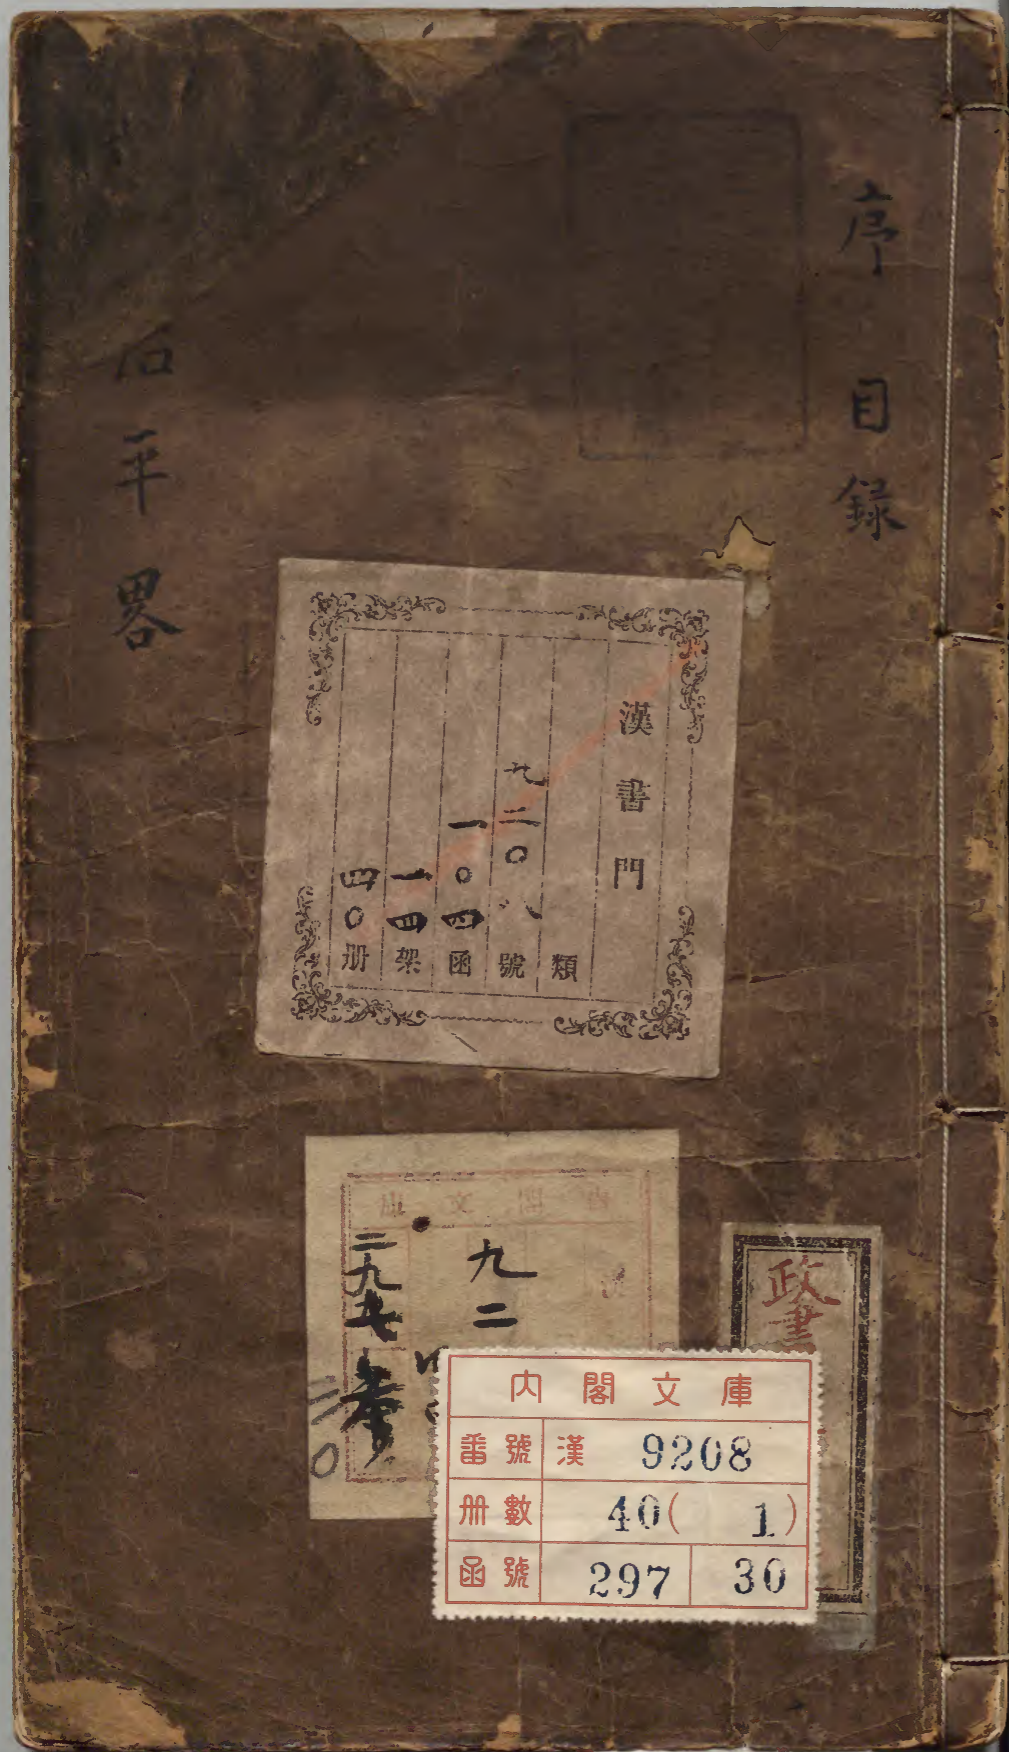 序 目録
平畧
漢書門
類
九二〇八號
一〇四函
一四架
四〇册
内閣文庫
九二
二九七
三〇
政書
内閣文庫
番號 漢 9208
册數 40( 1)
函號 297 30